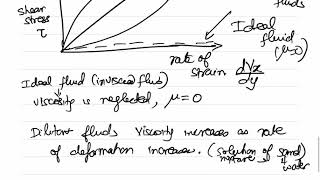 shear
stress
τ
fluids
Ideal
fluid
(μ=0)
rate of
strain dVx/dy
Ideal fluid (inviscid fluid)
viscosity is neglected, μ=0
Dilatant fluids viscosity increases as rate
of deformation increase. (solution of sand)
mixture & water